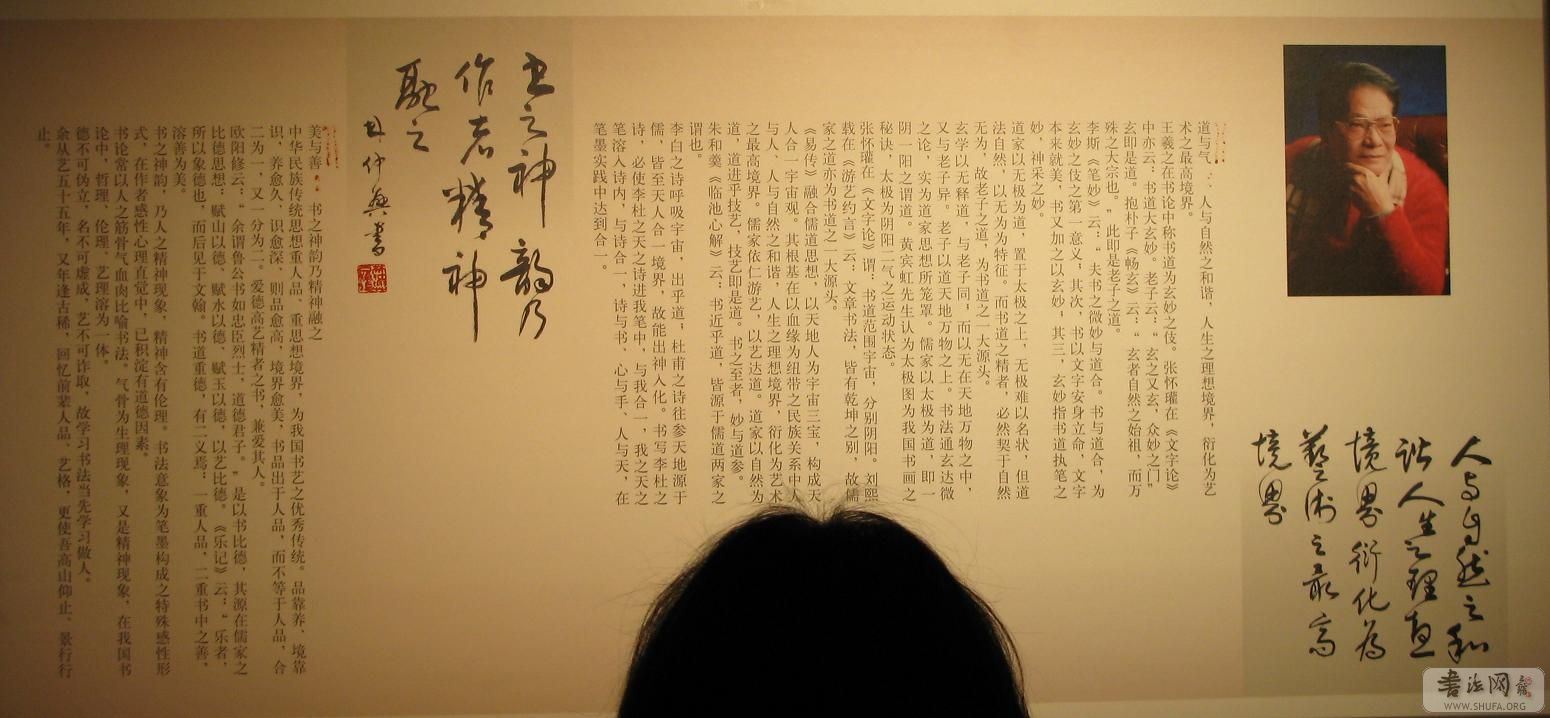 人与自然之和
谐人生之理想
境界衍化为
艺术之最高
境界
道与气 人与自然之和谐，人生之理想境界，衍化为艺
术之最高境界。
王羲之在书论中称书道为玄妙之伎。张怀瓘在《文字论》
中亦云：书道大玄妙。老子云：“玄之又玄，众妙之门”
玄即是道。抱朴子《畅玄》云：“玄者自然之始祖，而万
殊之大宗也。”此即是老子之道。
李斯《笔妙》云：“夫书之微妙与道合。书与道合，为
玄妙之伎之第一意义；其次，书以文字安身立命，文字
本来就美，书又加之以玄妙，其三，玄妙指书道执笔之
妙，神采之妙。
道家以无极为道，置于太极之上，无极难以名状，但道
法自然，以无为为特征。而书道之精者，必然契于自然
无为，故老子之道，为书道之一大源头。
玄学以无释道，与老子同，而以无在天地万物之中，
又与老子异。老子以道天地万物之上。书法通玄达微
之论，实为道家思想所笼罩。儒家以太极为道，即一
阴一阳之谓道。黄宾虹先生认为太极图为我国书画之
秘诀，太极为阴阳二气之运动状态。
张怀瓘在《文字论》谓：书道范围宇宙，分别阴阳。刘熙
载在《游艺约言》云：文章书法，皆有乾坤之别，故儒
家之道亦为书道之一大源头。
《易传》融合儒道思想，以天地人为宇宙三宝，构成天
人合一宇宙观。其根基在以血缘为纽带之民族关系中人
与人、人与自然之和谐，人生之理想境界，衍化为艺术
之最高境界。儒家依仁游艺，以艺达道。道家以自然为
道，道进乎技艺，技艺即是道。书之至者，妙与道参。
朱和羹《临池心解》云：书近乎道，皆源于儒道两家之
谓也。
李白之诗呼吸宇宙，出乎道，杜甫之诗往参天地源于
儒，皆至天人合一境界，故能出神入化。书写李杜之
诗，必使李杜之天之诗进我笔中，与我合一，我之天之
笔溶入诗内，与诗合一，诗与书、心与手、人与天，在
笔墨实践中达到合一。
书之神韵乃
作者精神
融之
林仲兴书
美与善 书之神韵乃精神融之
中华民族传统思想重人品、重思想境界，为我国书艺之优秀传统。品靠养、境靠
识，养愈久、识愈深、则品愈高，境界愈美，书品出于人品，而不等于人品，合
二为一，又一分为二。爱德高艺精者之书，兼爱其人。
欧阳修云：“余谓鲁公书如忠臣烈士，道德君子。”是以书比德，其源在儒家之
比德思想：赋山以德、赋水以德、赋玉以德，以艺比德。《乐记》云：“乐者，
所以象德也”，而后见于文翰。书道重德，有二义焉：一重人品，二重书中之善，
溶善为美。
书之神韵，乃人之精神现象，精神含有伦理。书法意象为笔墨构成之特殊感性形
式，在作者感性心理直觉中，已积淀有道德因素。
书论常以人之筋骨气血肉比喻书法。气骨为生理现象，又是精神现象，在我国书
论中，哲理、伦理、艺理溶为一体。
德不可伪立，名不可虚成，艺不可诈取，故学习书法当先学习做人。
余从艺五十五年，又年逢古稀，回忆前辈人品、艺格，更使吾高山仰止、景行行
止。
书法网
WWW.SHUFA.ORG